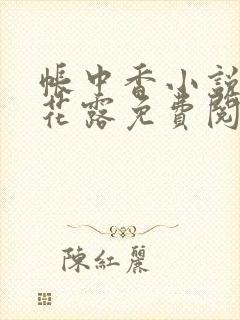 帳中香小說
花露免費閱
陳紅麗